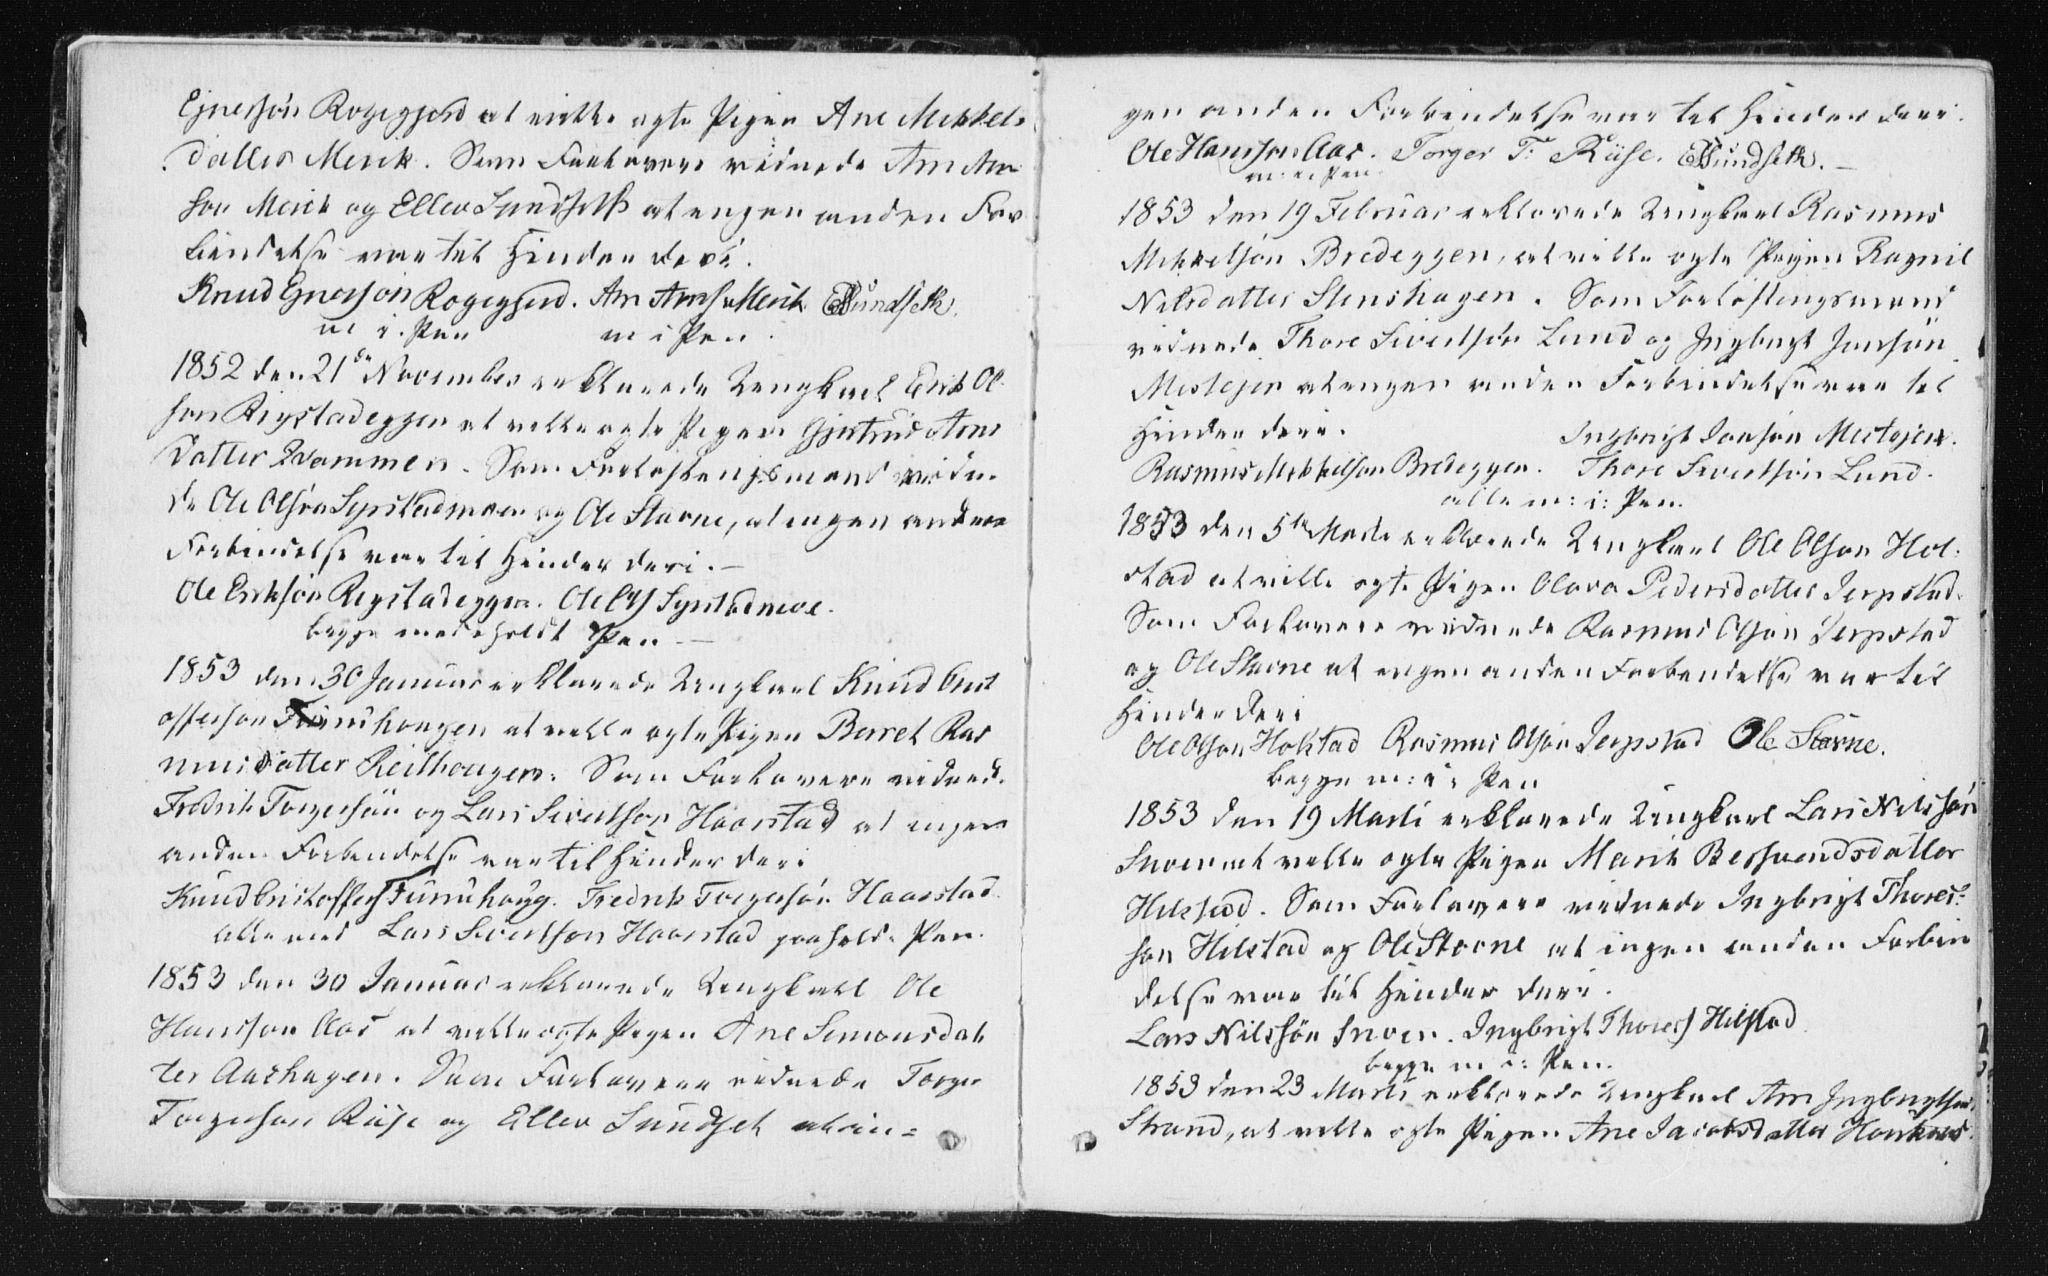 Ejnersøn Rogegjerd at ville ægte Pigen Ane Mikkels
datter Merik. Som Forlovere vidnede Arn Arn
søn Merik og Ellev Sundseth at engen anden For
bindelse var til Hinder deri.
Knud Ejnersøn Rogegjerd. Arn Arns: Merik ESundseth.
m i Pen m i Pen.
1852 den 21de November erklærede Ungkarl Erik Ol
søn Rigstadeggen at ville ægte Pigen Gjertrud Arns
datter Qvammen. Som Forløftengsmænd vidne
de Ole Olsøn og Ole Stavne, at engen anden
Forbindelse var til Hinder deri.
Ole Eriksøn Regstadeggen. Ole Ols
begge medholdt Pen
1853 den 30 Januar erklærede Ungkarl Knud Crist
offersøn Furruhougen at ville ægte Pigen Berret Ras
musdatter Reithougen. Som Forlovere vidned.
Fredrik Torgersøn og Lars Sivertsøn Haarstad at ingen
anden Forbendelse var til Hinder deri
Knud Cristoffers Furruhoug. Fredrik Torgersøn Haarstad
alle med Lars Sivertsøn Haarstad paaholde Pen.
1853 den 30 Januar erklærede Ungkarl Ole
Hanssøn Aas at ville ægte Pigen Ane Simonsdat
ter Aashagen. Som Forlovere vidnede Torger
Torgersøn Riise og Ellev Sundset at in=
gen anden Forbendelse var til Hinder deri.
Ole Hanssøn Aas. Torger T: Riise. ESundseth.
m: i: Pen.
1853 den 19 Februar erklærede Ungkarl Rasmus
Mikkelsøn Bredeggen, at ville ægte Pigen Ragnil
Nilsdatter Stenshagen. Som Forløftengsmænd
vidnede Thore Sivertsøn Lund og Ingbrigt Jonsøn
Mestejen at engen anden Forbindelse var til
Hinder deri. Ingbrigt Jonsøn Mestejen.
Rasmus Mikkelsøn Bredeggen. Thore Sivertsøn Lund.
alle m: i: Pen.
1853 den 5te Marti erklærede Ungkarl Ole Olsøn Hol
stad at ville ægte Pigen Olava Pedersdatter Jerpstad.
Som Forlovere vidnede Rasmus Olsøn Jerpstad
og Ole Stavne at engen anden Forbendelse var til
Hinder deri
Ole Olsøn Holstad Rasmus Olsøn Jerpstad Ole Stavne.
begge m: i: Pen
1853 den 19 Marti erklærede Ungkarl Lars Nilssøn
Snoen at ville ægte Pigen Marit Bersvendsdatter
Hilstad. Som Forlovere vidnede Ingbrigt Thores-
søn Hilstad og Ole Stavne at ingen anden Forbin
delse var til Hinder deri.
Lars Nilssøn Snoen. Ingbrigt Thores: Hilstad
begge m i: Pen.
1853 den 23 Marti erklærede Ungkarl Arn Ingbrigtsøn
Strand, at ville ægte Pigen Ane Jacobsdatter